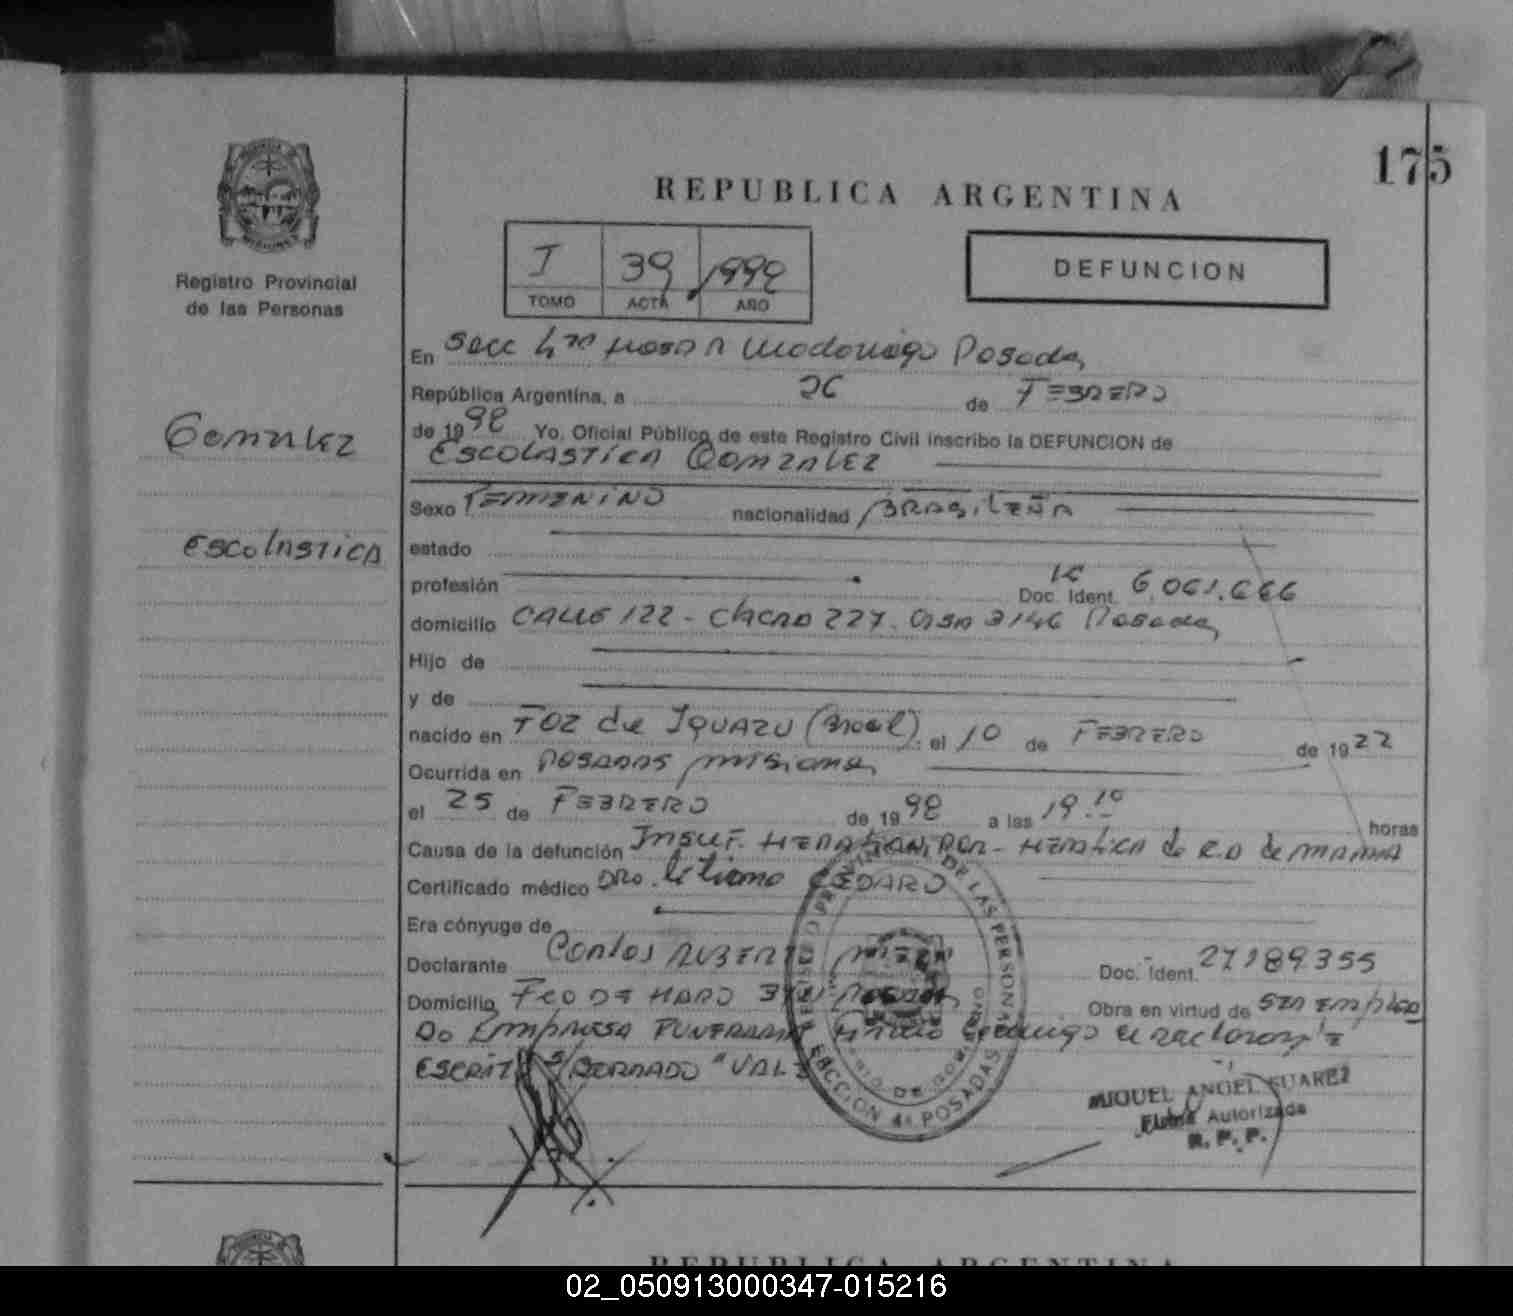 175
REPUBLICA ARGENTINA
Registro Provincial
de las Personas
I 39 1998
TOMO ACTA AÑO
DEFUNCION
En Secc 4ta Posadas
República Argentina, a 26 de FEBRERO
de 1998 Yo, Oficial Público de este Registro Civil inscribo la DEFUNCION de
ESCOLASTICA GONZALEZ
GONZALEZ
ESCOLASTICA
Sexo FEMENINO nacionalidad BRASILEÑA
estado
profesión Doc. Ident. 6.061.666
domicilio CALLE 122 - CHCRA 227 - CASA 3146 Posadas
Hijo de
y de
nacido en FOZ de IGUAZU (Brasil) el 10 de FEBRERO de 1922
Ocurrida en POSADAS MISIONES
el 25 de FEBRERO de 1998 a las 19.10 horas
Causa de la defunción INSUF. HEPATICA de MAMA
Certificado médico DRA. Liliana CEDARO
Era cónyuge de
Declarante Carlos Doc. Ident. 27189355
Domicilio FCO DE HARO Obra en virtud de SER EMPLEA
DO EMPRESA FUNERARIA
REGISTRO PROVINCIAL DE LAS PERSONAS
SECCION 4ª POSADAS
MIGUEL ANGEL SUAREZ
Autorizada
R. P. P.
REPUBLICA ARGENTINA
02_050913000347-015216